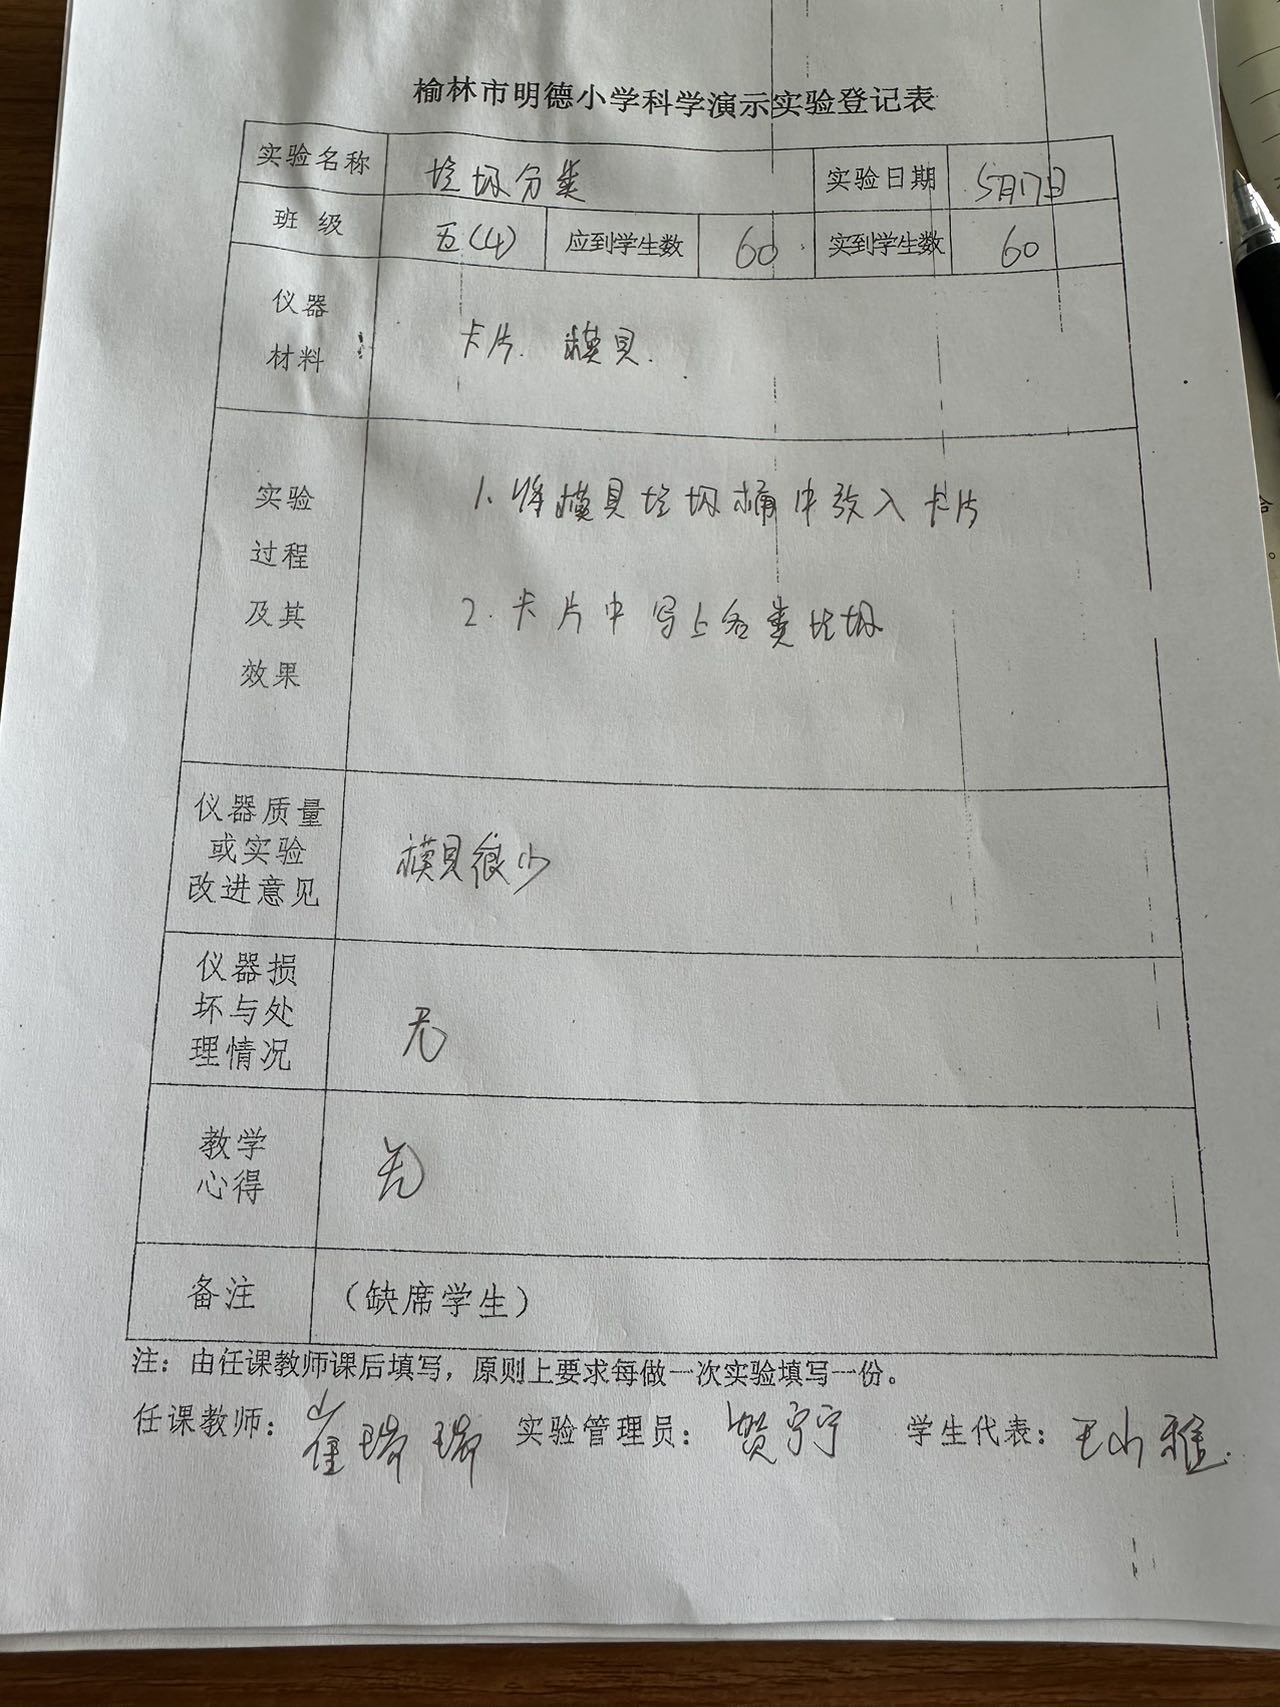 榆林市明德小学科学演示实验登记表
实验名称 垃圾分类 实验日期 5月17日
班级 五(4) 应到学生数 60 实到学生数 60
仪器
材料
卡片. 模具.
实验
过程
及其
效果
1. 将模具垃圾桶中放入卡片
2. 卡片中写上各类垃圾
仪器质量
或实验
改进意见
模具很少
仪器损
坏与处
理情况
无
教学
心得
无
备注 (缺席学生)
注：由任课教师课后填写，原则上要求每做一次实验填写一份。
任课教师：崔瑞瑞 实验管理员：贺宁宁 学生代表：王小雅